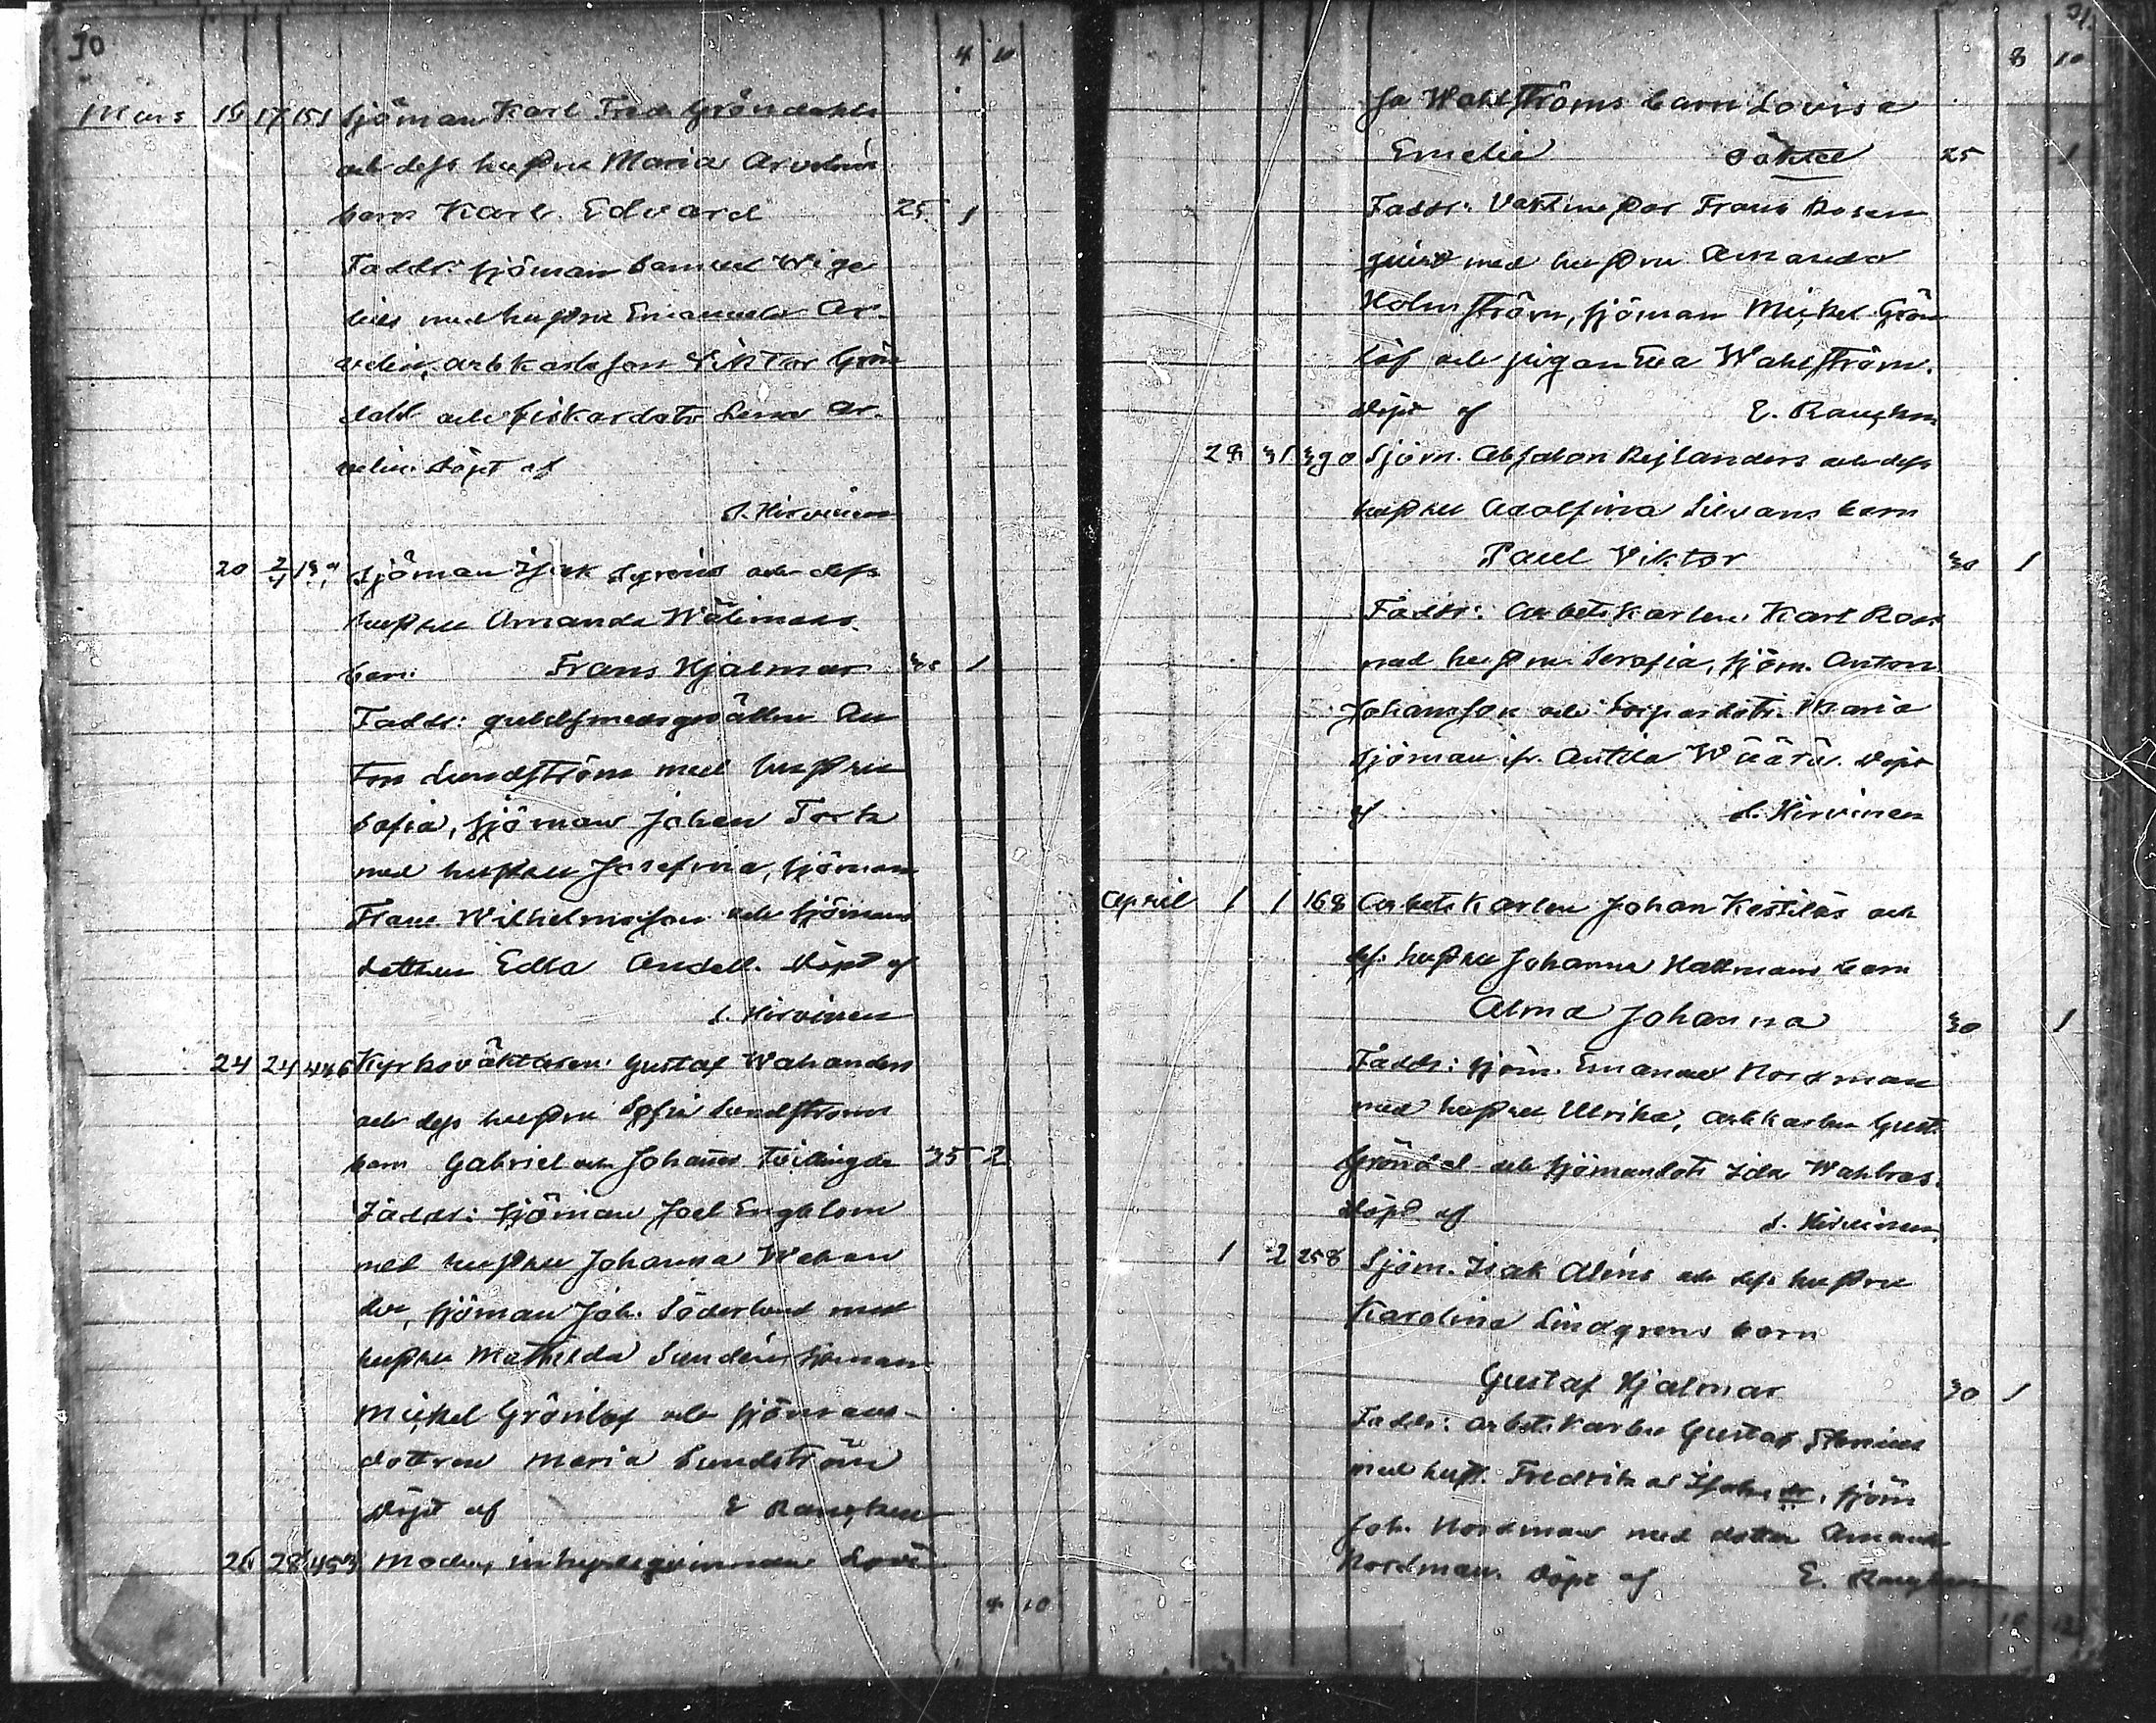 30
4 10
Mars 15 17 151 Sjöman Karl Fred. Gröndahls
och dess hustru Maria Arvelins
barn Karl Edvard 25 1
Faddr: sjöman Samuel Wige
lius med hustru Emanuela Ar-
velin, arbkarlsson Viktor Grön
dahl och fiskardotr Lena Ar-
velin. Döpt af
S. Hirvinen
20 2/4 Sjöman Isak Syréns och dess
hustru Amanda Wälimaas
barn Frans Hjalmar 30 1
Faddr: guldsmedsgesällen An
ton Lundström med hustru
Sofia, sjöman Johan Tork
med hustru Josefina, sjöman
Frans Wilhelmsson och sjömans
dottren Edla Andell. Döpt af
S. Hirvinen
24 24 446 Kyrkováktaren Gustaf Wahanders
och dess hustru Sofia Lundströms
barn Gabriel och Johannes Tvillingar 35 2
Faddr: sjöman Joel Engblom
med hustru Johanna Wahan
der, sjöman Joh. Söderlund med
hustru Mathilda Sundén, sjöman
Mickel Grönlöf och sjömans-
dottren Maria Sundström
Döpt af E Rancken
26 28 453 Modern, inhyseqvinnan Lovi
10
31
8 10
sa Wahlströms barn Lovisa
Emelie oäkta 25 1
Faddr: Vaktmästar Frans Rosen
quist med hustru Amanda
Holmström, sjöman Mickel Grön
löf och pigan Eva Wahlström.
Döpt af E. Rancken
28 31 390 Sjöm. Absalon Rejlanders och dess
hustru Adolfina Silvans barn
Paul Viktor 30 1
Faddr: Arbetskarlen Karl Ros
med hustru Serafia, sjöm. Anton
Johansson och Maria
Sjöman, fr. Antila Wäärä. Döpt
af S. Hirvinen
April 1 1 168 Arbetskarlen Johan Kestiläs och
dess hustru Johanna Hallmans barn
Alma Johanna 30 1
Faddr: sjöm. Emanuel Nordman
med hustru Ulrika, arbkarlen Gust.
Gröndal och sjömansdotr Ida Wahlroos.
Döpt af S. Hirvinen
1 2 258 Sjöm. Isak Aléns och dess hustru
Karolina Lindgrens barn
Gustaf Hjalmar 30 1
Faddr: arbetskarlen Gustaf
med hust. Fredrika Isaksdr, sjöm
Joh. Nordman med dotter Amanda
Nordman. Döpt af E. Rancken
10 12